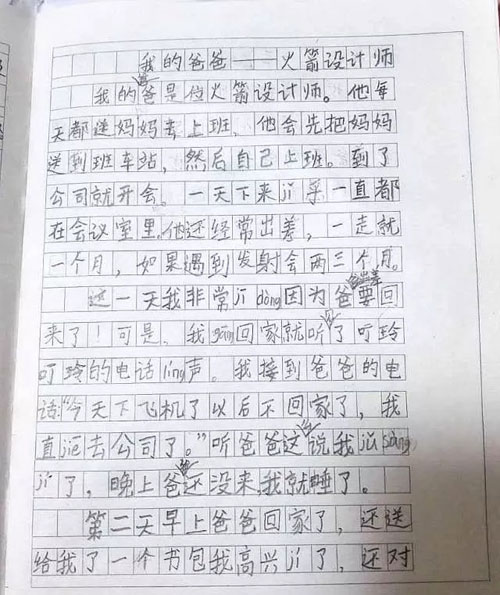 我的爸爸——火箭设计师
我的爸爸是位火箭设计师。他每
天都送妈妈去上班，他会先把妈妈
送到班车站，然后自己上班。到了
公司就开会。一天下来jǐ乎一直都
在会议室里。他还经常出差，一走就
一个月，如果遇到发射会两三个月。
这一天我非常jī dòng因为爸爸出差要回
来了！可是，我gāng回家就听了叮玲
叮玲的电话líng声。我接到爸爸的电
话:“今天下飞机了以后不回家了，我
直jiē去公司了。”听爸爸这说我jǔ sàng
jí了，晚上爸还没来,我就睡了。
第二天早上爸爸回家了，还送
给我了一个书包我高兴jí了，还对